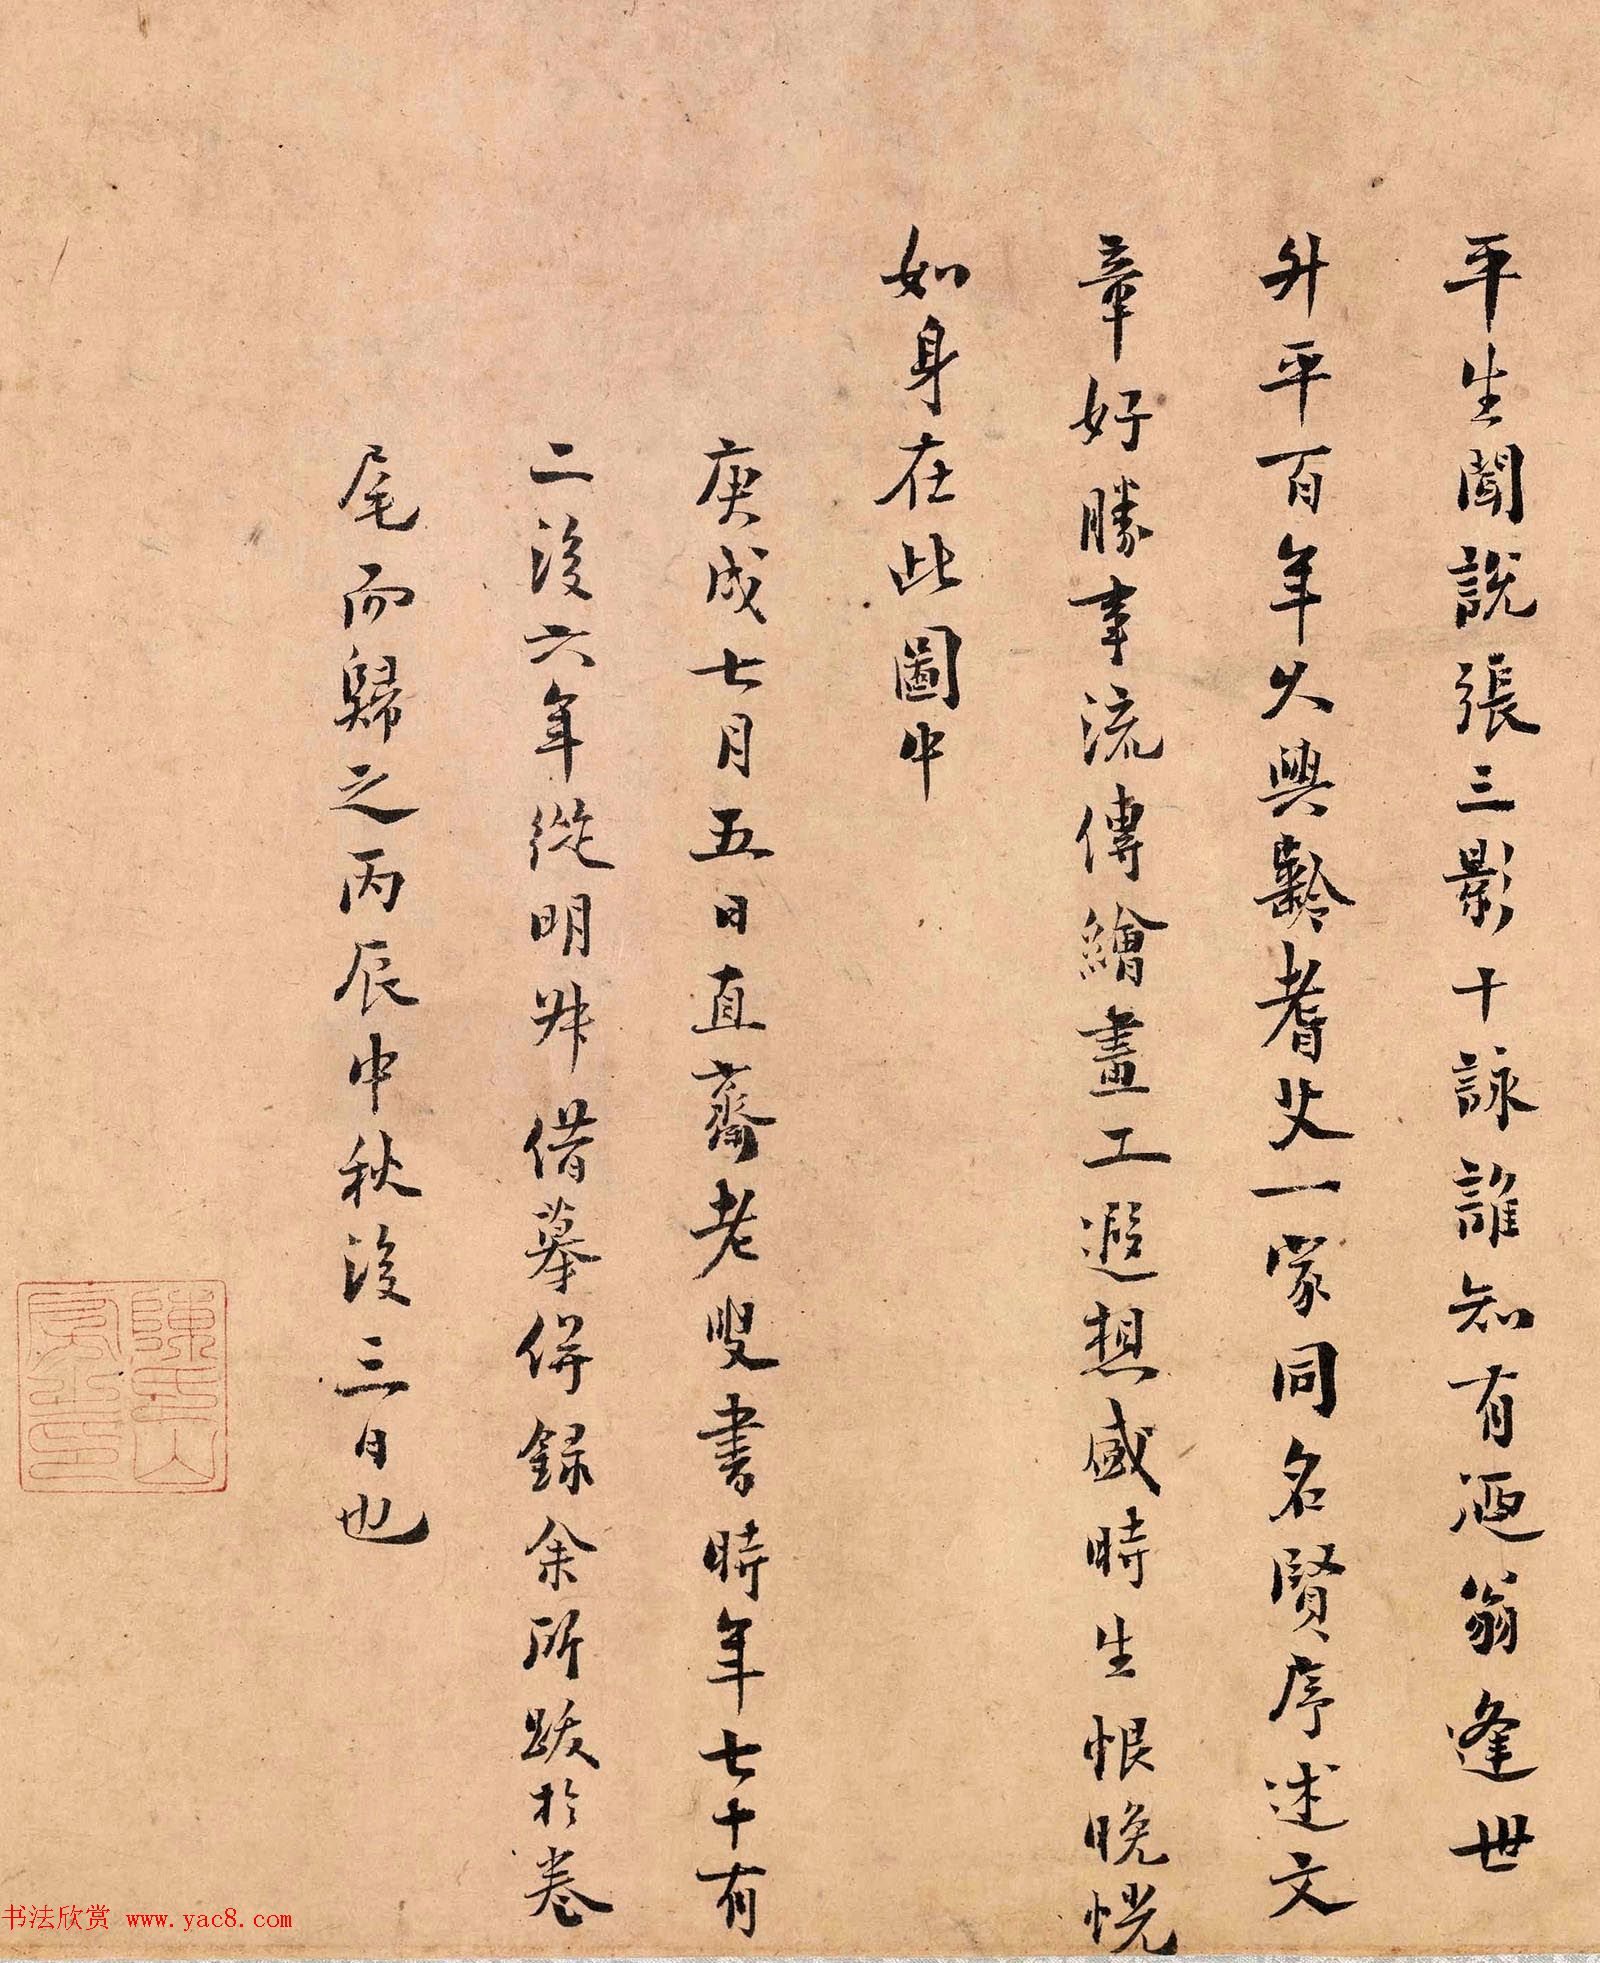 平生聞說張三影十詠誰知有迺翁逢世
升平百年久興齡耆艾一家同名賢序述文
章好勝事流傳繪畫工遐想盛時生恨晚恍
如身在此圖中
庚戌七月五日直齋老叟書時年七十有
二後六年從明叔借摹併錄余所跋於卷
尾而歸之丙辰中秋後三日也
陳氏山
房之印
书法欣赏 www.yac8.com